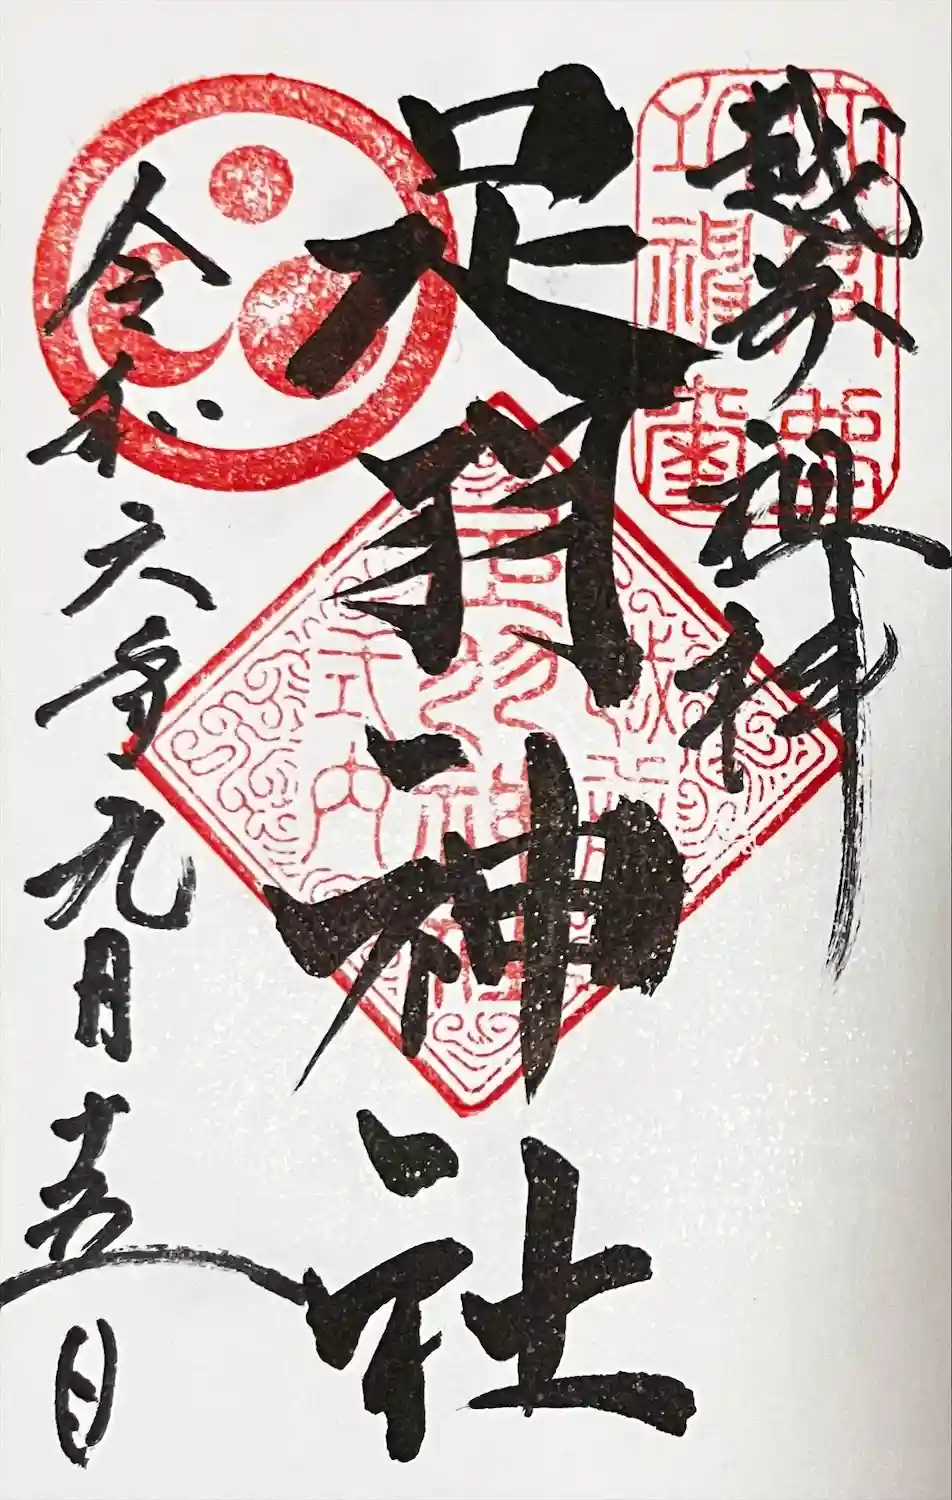 越前 神拝
足羽神社
令和六年九月十五日
越前
足羽神社
式内